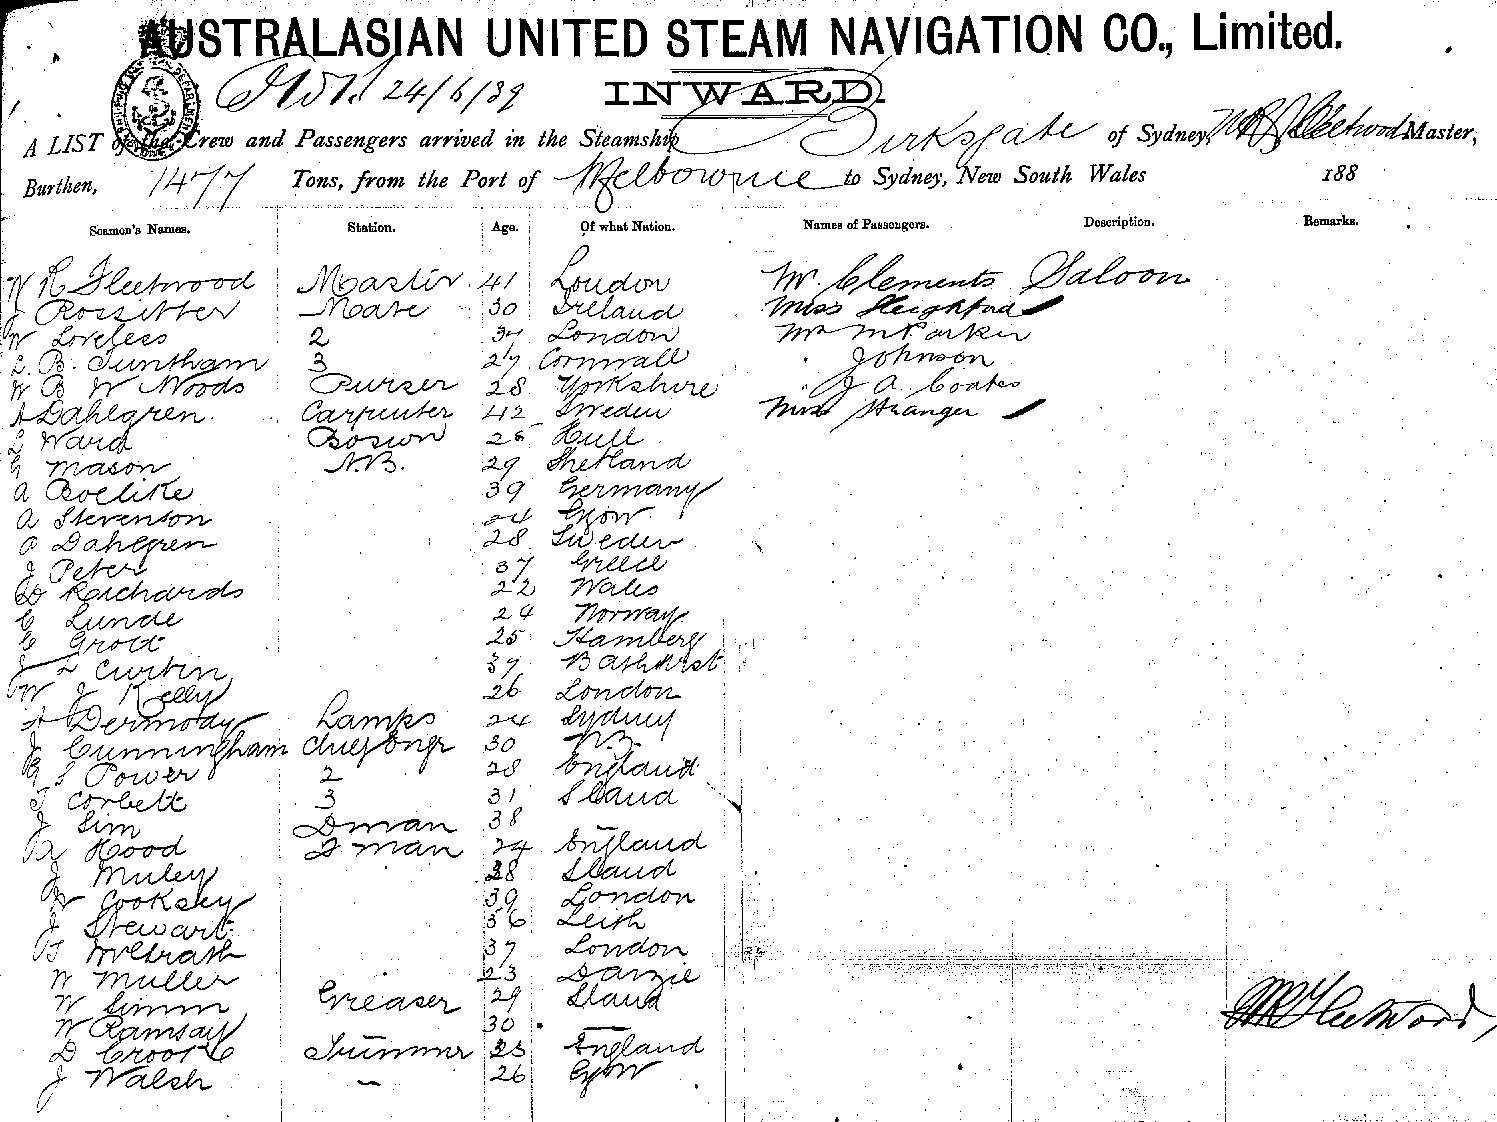 AUSTRALASIAN UNITED STEAM NAVIGATION CO., Limited.
24/6/89 INWARD.
A LIST of the Crew and Passengers arrived in the Steamship Birksgate of Sydney, W R Fleetwood Master,
Burthen, 1477 Tons, from the Port of Melbourne to Sydney, New South Wales 188
Seamen's Names. Station. Age. Of what Nation. Names of Passengers. Description. Remarks.
W R Fleetwood Master 41 London Mr. Clements Saloon
J Rossitter Mate 30 Ireland Miss
W Loveless 2 London Mr
L. B. Tuntham 3 27 Cornwall Johnson
W B W Woods Purser 28 Yorkshire J A Coates
A Dahlgren Carpenter 42 Sweden Stranger
L Ward Bosun 26 Hull
G Mason A.B. 29 Shetland
A Boelike 39 Germany
A Stevenson 24 Ggow
O Dahlgren 28 Sweden
J Peter 37 Greece
W Richards 22 Wales
C Lunde 24 Norway
C Grott 25 Hamberg
J L Curtin 37 Bathurst
W J Kelly 26 London
A Dermody Lamps 24 Sydney
J Cunningham chief Engr 30 N.B.
G S Power 2 28 England
T Corbett 3 31 Sland
J Sim Dman 38 —
R Hood D man 24 England
J Muley 28 Sland
W Cooksey 39 London
J Stewart 36 Leith
T McGrath 37 London
W Muller 23 Danzie
W Simm Greaser 29 Sland
W Ramsay 30 —
D Crook Trimmer 23 England
J Walsh — 26 Ggow
W R Fleetwood,